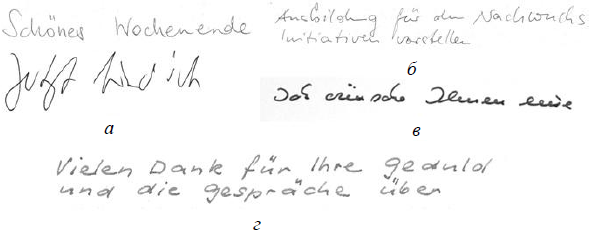 Schönes Wochenende
Jetzt bin ich
а
Ausbildung für den Nachwuchs
Initiativen vorstellen
б
Ich wünsche Ihnen eine
в
Vielen Dank für Ihre geduld
und die gespräche über
г